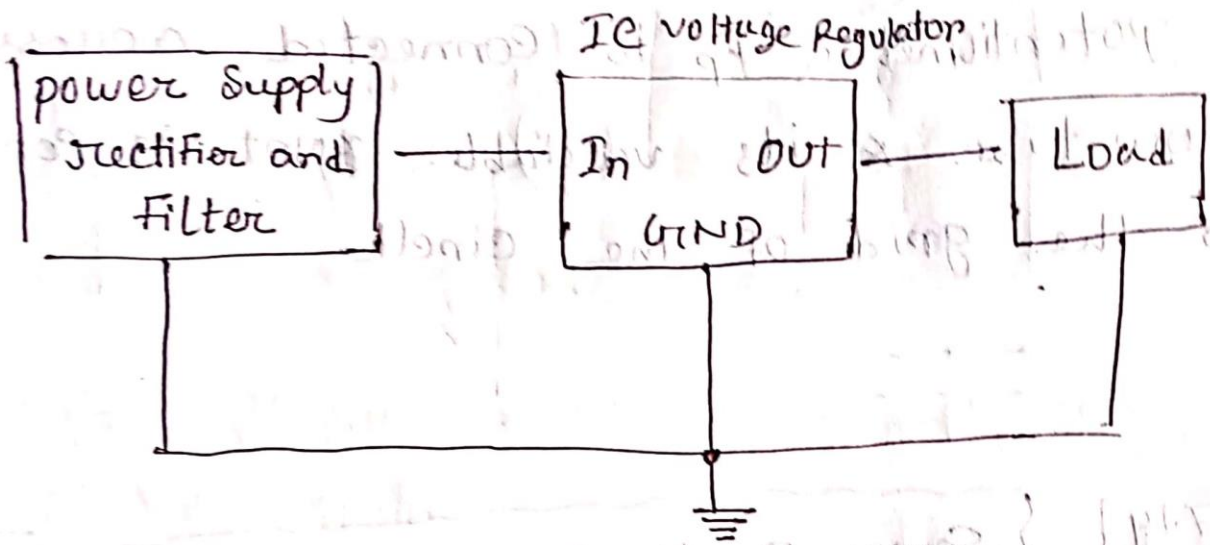 IC Voltage Regulator
power Supply
rectifier and
Filter
In OUT
GND
Load